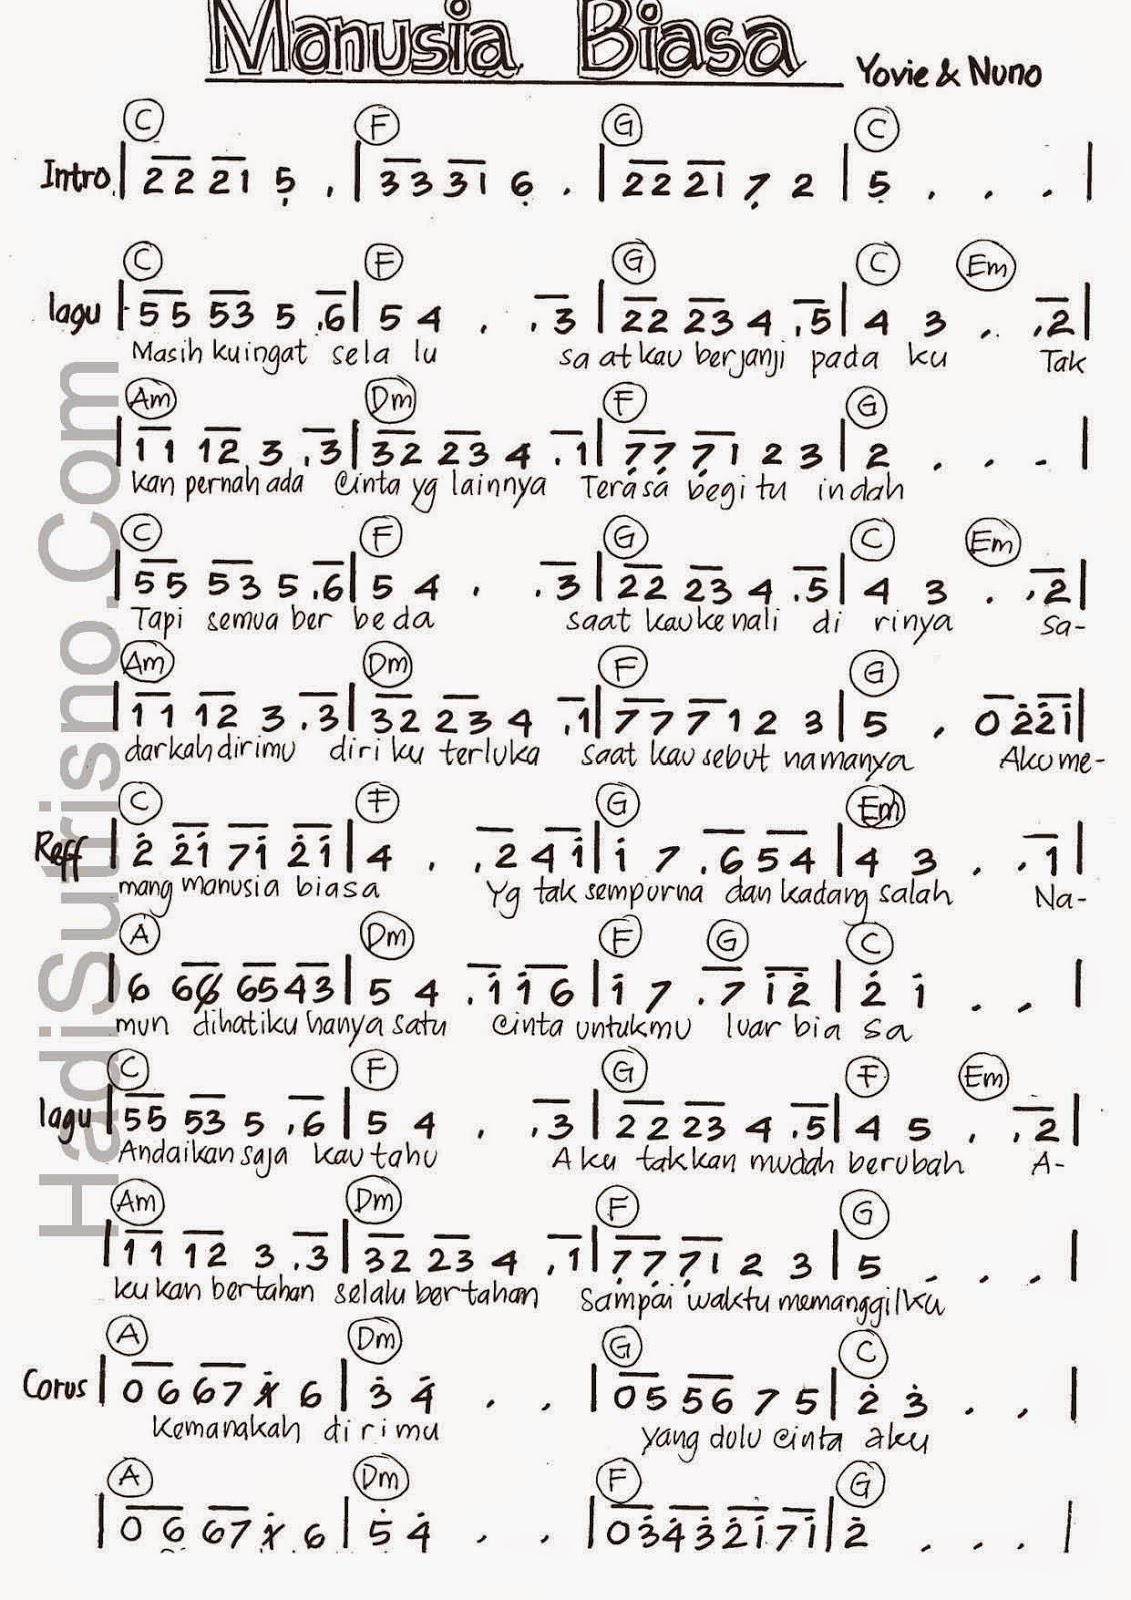 Manusia Biasa Yovie & Nuno
C F G C
Intro | 22 21 5 . | 33 31 6 . | 22 21 7 2 | 5 . . . |
C F G C Em
lagu | 55 53 5 .6 | 5 4 . .3 | 22 23 4 .5 | 4 3 . .2 |
Masih kuingat sela lu sa at kau berjanji pada ku Tak
Am Dm F G
| 11 12 3 .3 | 32 23 4 .1 | 77 71 2 3 | 2 . . . |
kan pernah ada cinta yg lainnya Terasa begi tu indah
C F G C Em
| 55 53 5 .6 | 5 4 . .3 | 22 23 4 .5 | 4 3 . .2 |
Tapi semua ber beda saat kau ke nali di rinya Sa-
Am Dm F G
| 11 12 3 .3 | 32 23 4 .1 | 77 71 2 3 | 5 . 0 2 2 1 |
darkah dirimu diri ku terluka saat kau sebut namanya Aku me-
C F G Em
Reff | 2 21 71 21 | 4 . .2 41 | 1 7 .6 54 | 4 3 . .1 |
mang manusia biasa Yg tak sempurna dan kadang salah Na-
A Dm F G C
| 6 66 65 43 | 5 4 .1 16 | 1 7 .7 12 | 2 1 . . |
mun dihatiku hanya satu cinta untukmu luar bia sa
C F G F Em
lagu | 55 53 5 .6 | 5 4 . .3 | 22 23 4 .5 | 4 5 . .2 |
Andaikan saja kau tahu Aku takkan mudah berubah A-
Am Dm F G
| 11 12 3 .3 | 32 23 4 .1 | 77 71 2 3 | 5 . . . |
ku kan bertahan selalu bertahan Sampai waktu memanggilku
A Dm G C
Corus | 0 6 67 1 6 | 3 4 . . | 05 56 7 5 | 2 3 . . |
Kemanakah dirimu yang dulu cinta aku
A Dm F G
| 0 6 67 1 6 | 5 4 . . | 03 43 21 71 | 2 . . . |
HadiSutrisno.Com